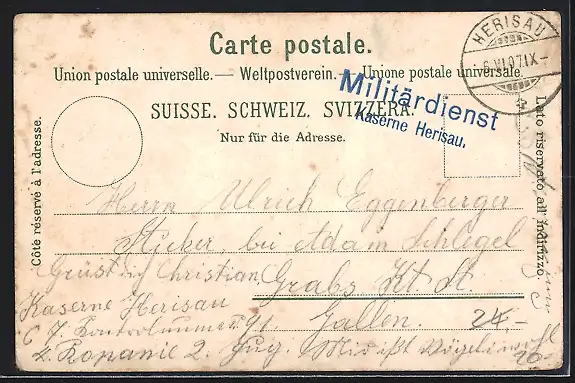 Carte postale.
Union postale universelle. — Weltpostverein. — Unione postale universale.
SUISSE. SCHWEIZ. SVIZZERA.
Nur für die Adresse.
HERISAU
6.VI.07.IX-
Militärdienst
Kaserne Herisau.
Côté réservé à l'adresse.
Lato riservato all'indirizzo.
Herrn Ulrich Eggenberger
Sticker bei Adam Schlegel
Grabs Kt. St.
Gallen.
Grüst dich Christian
Kaserne Herisau
2. Zug. Mir ist Vögeliwohl
24.-